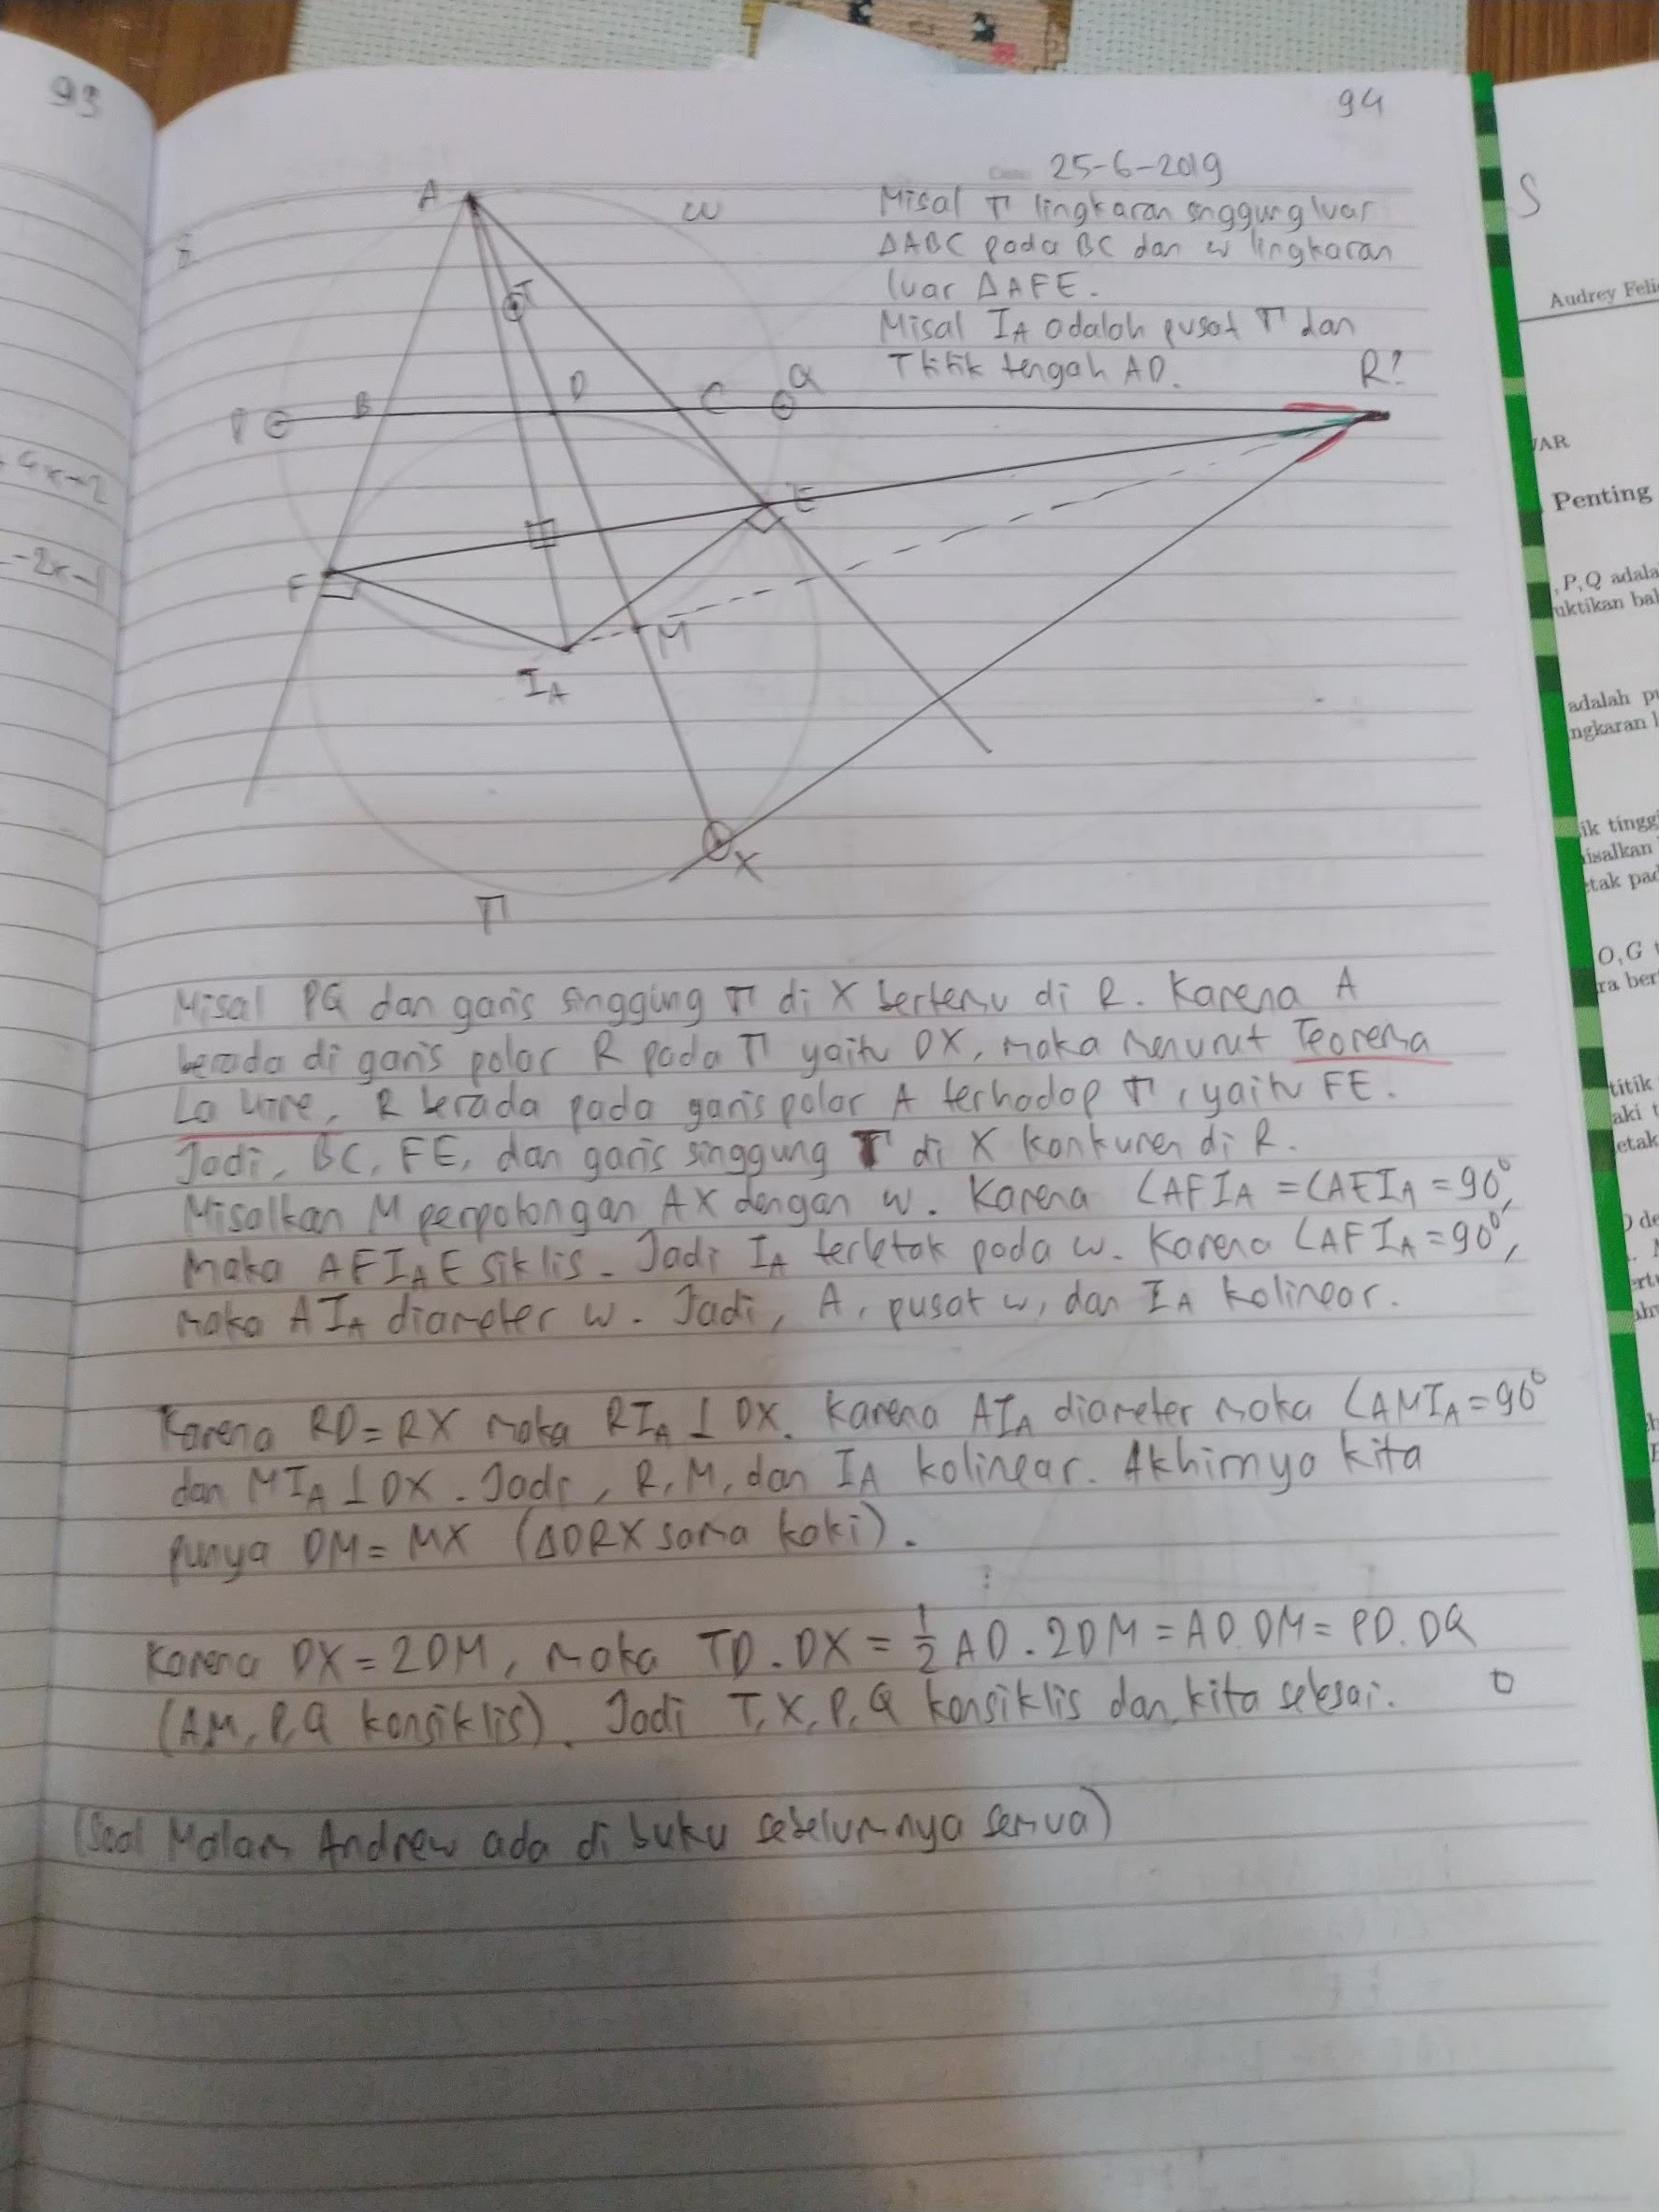 93
94
25-6-2019
Misal Π lingkaran singgung luar
ΔABC pada BC dan w lingkaran
luar ΔAFE.
Misal I_A adalah pusat Π dan
T titik tengah AD.
A
w
T
P
B
D
C
Q
R?
E
F
M
I_A
X
Π
Misal PQ dan garis singgung Π di X bertemu di R. Karena A
berada di garis polar R pada Π yaitu DX, maka menurut Teorema
La Hire, R berada pada garis polar A terhadap Π, yaitu FE.
Jadi, BC, FE, dan garis singgung Π di X konkuren di R.
Misalkan M perpotongan AX dengan w. Karena ∠AFI_A = ∠AEI_A = 90°,
maka AFI_AE siklis. Jadi I_A terletak pada w. Karena ∠AFI_A = 90°,
maka AI_A diameter w. Jadi, A, pusat w, dan I_A kolinear.
Karena RD = RX maka RI_A ⊥ DX. Karena AI_A diameter maka ∠AMI_A = 90°
dan MI_A ⊥ DX. Jadi, R, M, dan I_A kolinear. Akhirnya kita
punya DM = MX (ΔDRX sama kaki).
Karena DX = 2DM, maka TD . DX = 1/2 AD . 2DM = AD . DM = PD . DQ
(A,M, P, Q konsiklis). Jadi T, X, P, Q konsiklis dan kita selesai. □
(Soal Malam Andrew ada di buku sebelumnya semua)
4x-2
-2x-1
S
Penting
, P, Q adala
adalah
O, G
titik